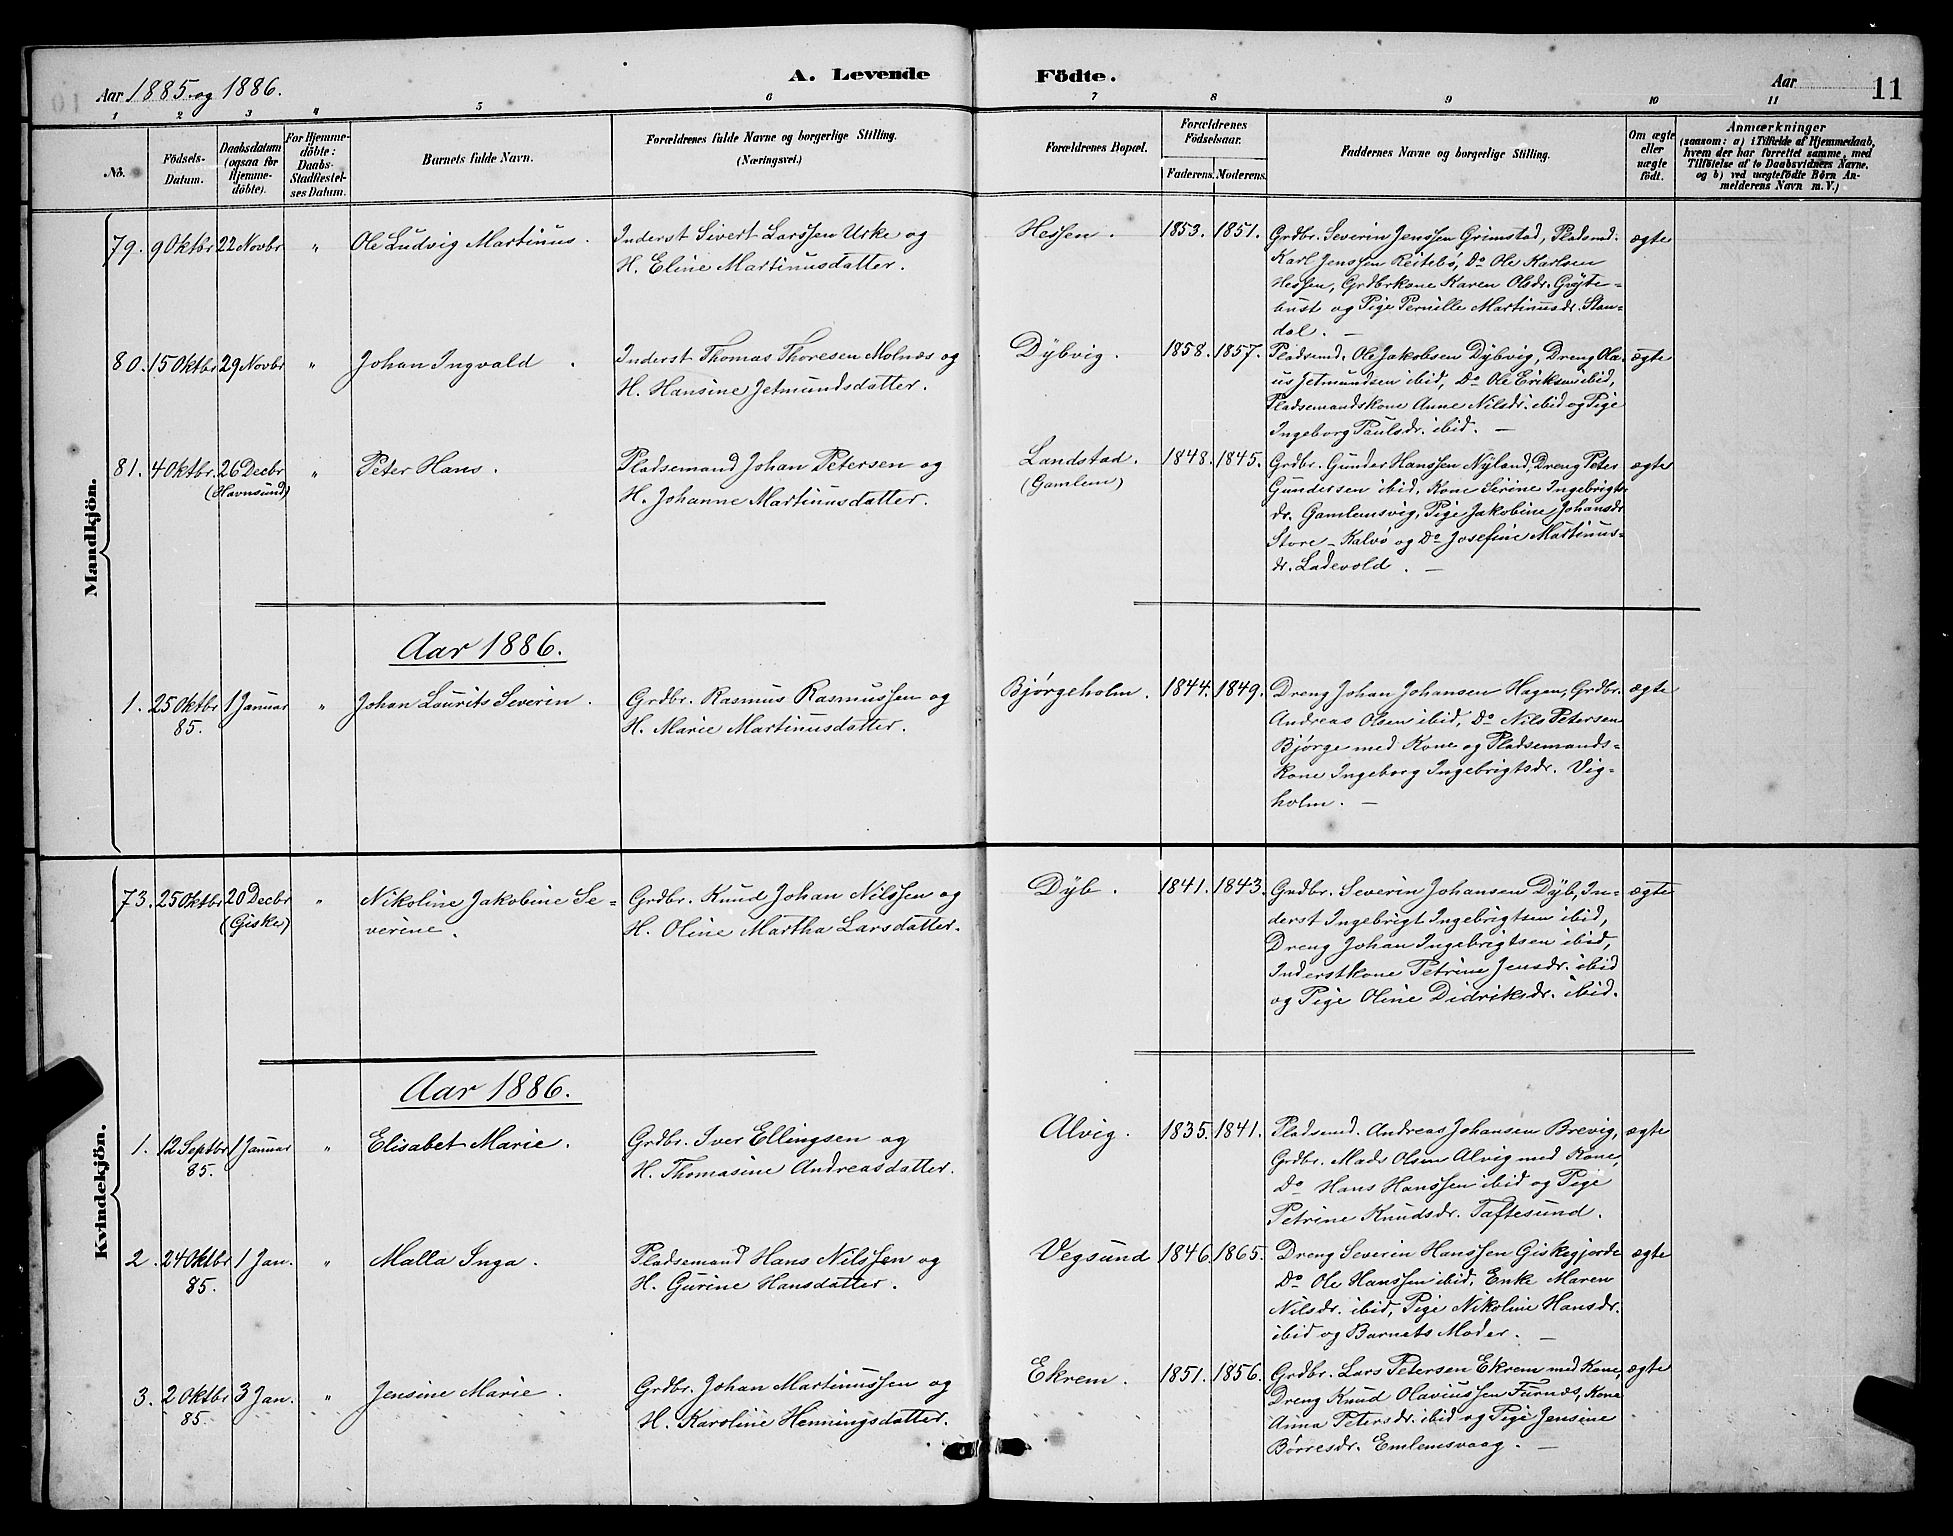 Aar 1885 og 1886.
A. Levende
Födte.
Aar
11
1 2 3 4 5 6
7 8 9 10 11
No.
Födsels-
Datum.
Daabsdatum
(ogsaa for
Hjemme-
döbte).
For Hjemme-
döbte:
Daabs-
Stadfæstel-
ses Datum.
Barnets fulde Navn.
Forældrenes fulde Navne og borgerlige Stilling.
(Næringsvei.)
Forældrenes Bopæl.
Forældrenes
Födselsaar.
Faderens. Moderens.
Faddernes Navne og borgerlige Stilling.
Om ægte
eller
uægte
født.
Anmærkninger
(saasom: a) i Tilfælde af Hjemmedaab,
hvem der har forrettet samme, med
Tilföielse af to Daabsvidners Navne.
og b) ved uægtefödte Börn An-
melderens Navn m. V.)
Mandkjön.
79. 9 Oktbr 22 Novbr " Ole Ludvig Martinus. Inderst Sivert Larssen Urke og
H. Eline Martinusdatter.
Hessen. 1853. 1851. Grdbr. Severin Jenssen Grimstad, Pladsmd. ægte
Karl Jenssen Reitebö, Do Ole Karlsen
Hessen, Grdbrkone Karen Olsdr. Gøjte-
bust og Pige Pernille Martinusdr. Stan-
dal. —
80. 15 Oktbr 29 Novbr " Johan Ingvald. Inderst Thomas Thoresen Molnæs og
H. Hansine Jetmundsdatter.
Dÿbvig. 1858. 1857. Pladsmd. Ole Jakobsen Dÿbvig, Dreng Ola- ægte
us Jetmundsen ibid, Do Ole Eriksen ibid,
Pladsemandskone Anne Nilsdr. ibid og Pige
Ingeborg Paulsdr. ibid. —
81. 4 Oktbr. 26 Decbr " Peter Hans. Pladsemand Johan Petersen og
(Havnsund) H. Johanne Martinusdatter.
Landstad. 1848. 1845. Grdbr. Gunder Hanssen Nÿland, Dreng Peter ægte
(Gamlem) Gundersen ibid, Kone Sirine Ingebrigts-
dr. Gamlemsvig, Pige Jakobine Johansdr
Store-Kalvö og Do Josefine Martinus-
dr. Ladevold. —
Aar 1886.
1. 25 Oktbr 1 Januar " Johan Laurits Severin. Grdbr. Rasmus Rasmussen og
85. H. Marie Martinusdatter.
Bjørgeholm. 1844. 1849. Dreng Johan Johansen Hagen, Grdbr. ægte
Andreas Olsen ibid, Do Nils Petersen
Bjørge med Kone og Pladsemands-
kone Ingeborg Ingebrigtsdr. Vig-
holm. —
Kvindekjön.
73. 25 Oktbr 20 Decbr " Nikoline Jakobine Se- Grdbr. Knud Johan Nilssen og
(Giske) verine. H. Oline Martha Larsdatter.
Dÿb. 1841. 1843. Grdbr. Severin Johansen Dÿb, In- ægte
derst Ingebrigt Ingebrigtsen ibid,
Dreng Johan Ingebrigtsen ibid,
Inderstkone Petrine Jensdr. ibid
og Pige Oline Didriksdr. ibid.
Aar 1886.
1. 12 Septbr 1 Januar " Elisabet Marie. Grdbr. Iver Ellingsen og
85. H. Thomasine Andreasdatter.
Alvig. 1835. 1841. Pladsmd. Andreas Johansen Brevig, ægte
Grdbr. Mads Olsen Alvig med Kone,
Do Hans Hanssen ibid og Pige
Petrine Knudsdr. Taftesund.
2. 24 Oktbr 1 Jan. " Malla Inga. Pladsemand Hans Nilssen og
85. H. Gurine Hansdatter.
Vegsund 1846. 1865. Dreng Severin Hanssen Giskegjerde ægte
Do Ole Hanssen ibid, Enke Maren
Nilsdr. ibid, Pige Nikoline Hansdr.
ibid og Barnets Moder. —
3. 2 Oktbr 3 Jan. " Jensine Marie. Grdbr. Johan Martinussen og
85. H. Karoline Henningsdatter.
Ekrem. 1851. 1856. Grdbr. Lars Petersen Ekrem med Kone, ægte
Dreng Knud Olaviussen Furnæs, Kone
Anna Petersdr. ibid og Pige Jensine
Børresdr. Emlemsvaag. —